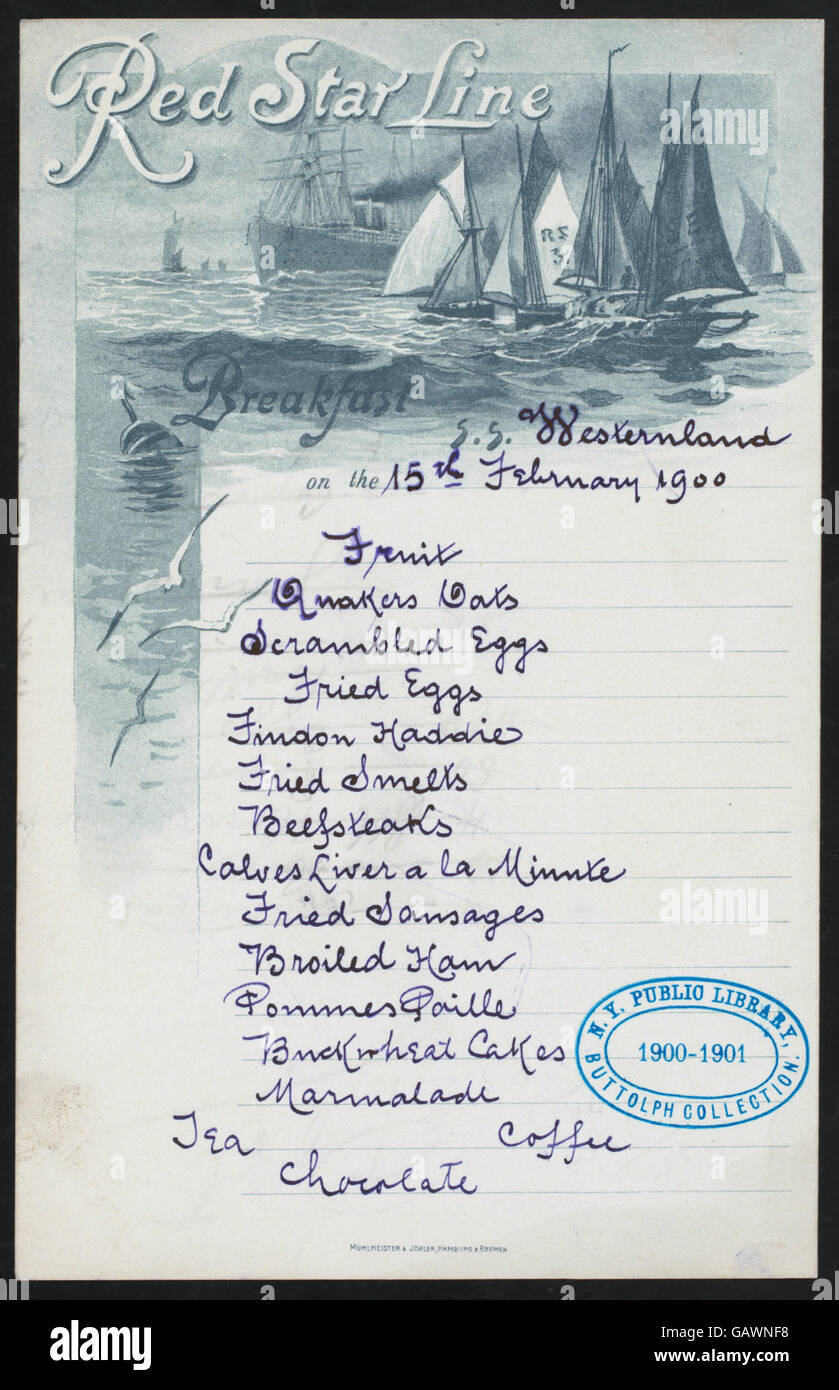 Red Star Line
RS
3
Breakfast
S.S. Westernland
on the 15th February 1900
Fruit
Quakers Oats
Scrambled Eggs
Fried Eggs
Findon Haddie
Fried Smelts
Beefsteaks
Calves Liver a la Minute
Fried Sausages
Broiled Ham
Pommes Paille
Buckwheat Cakes
Marmalade
Tea Coffee
Chocolate
N.Y. PUBLIC LIBRARY,
1900-1901
BUTTOLPH COLLECTION.
MÜHLMEISTER & JOHLER, HAMBURG & BREMEN
alamy
alamy
Image ID: GAWNF8
www.alamy.com